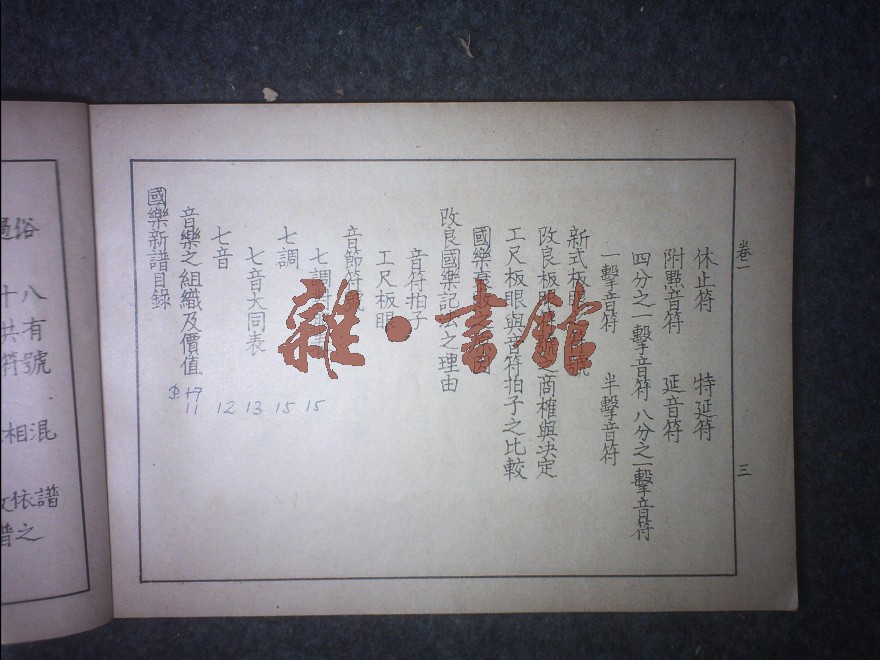 俗
十八
共有
符號
相混
依譜
之
國樂新譜目錄
音樂之組織及價值 P.17 11
七音 12
七音大同表 13
七調 15
七調 15
音節符
工尺板眼
音符拍子
改良國樂記法之理由
國樂
工尺板眼與音符拍子之比較
改良板 之商榷與決定
新式板 號
一擊音符 半擊音符
四分之一擊音符 八分之一擊音符
附點音符 延音符
休止符 特延符
卷一 三
雜·書館